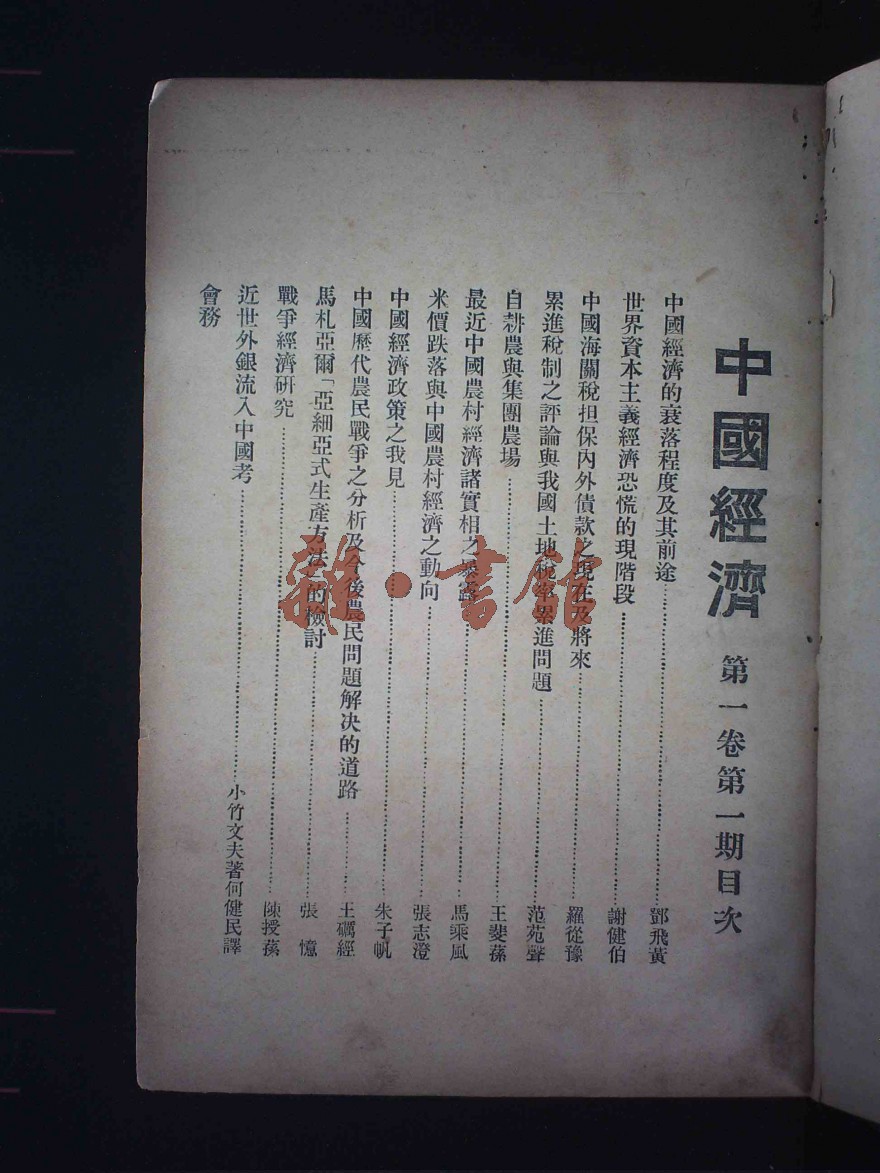 中國經濟 第一卷第一期目次
中國經濟的衰落程度及其前途 鄧飛黃
世界資本主義經濟恐慌的現階段 謝健伯
中國海關稅担保內外債款之現在及將來 羅從豫
累進稅制之評論與我國土地稅率累進問題 范苑聲
自耕農與集團農場 王斐蓀
最近中國農村經濟諸實相之暴露 馬乘風
米價跌落與中國農村經濟之動向 張志澄
中國經濟政策之我見 朱子帆
中國歷代農民戰爭之分析及今後農民問題解决的道路 王礪經
馬札亞爾「亞細亞式生產方法」的檢討 張憶
戰爭經濟研究 陳授蓀
近世外銀流入中國考 小竹文夫著何健民譯
會務
雜·書館